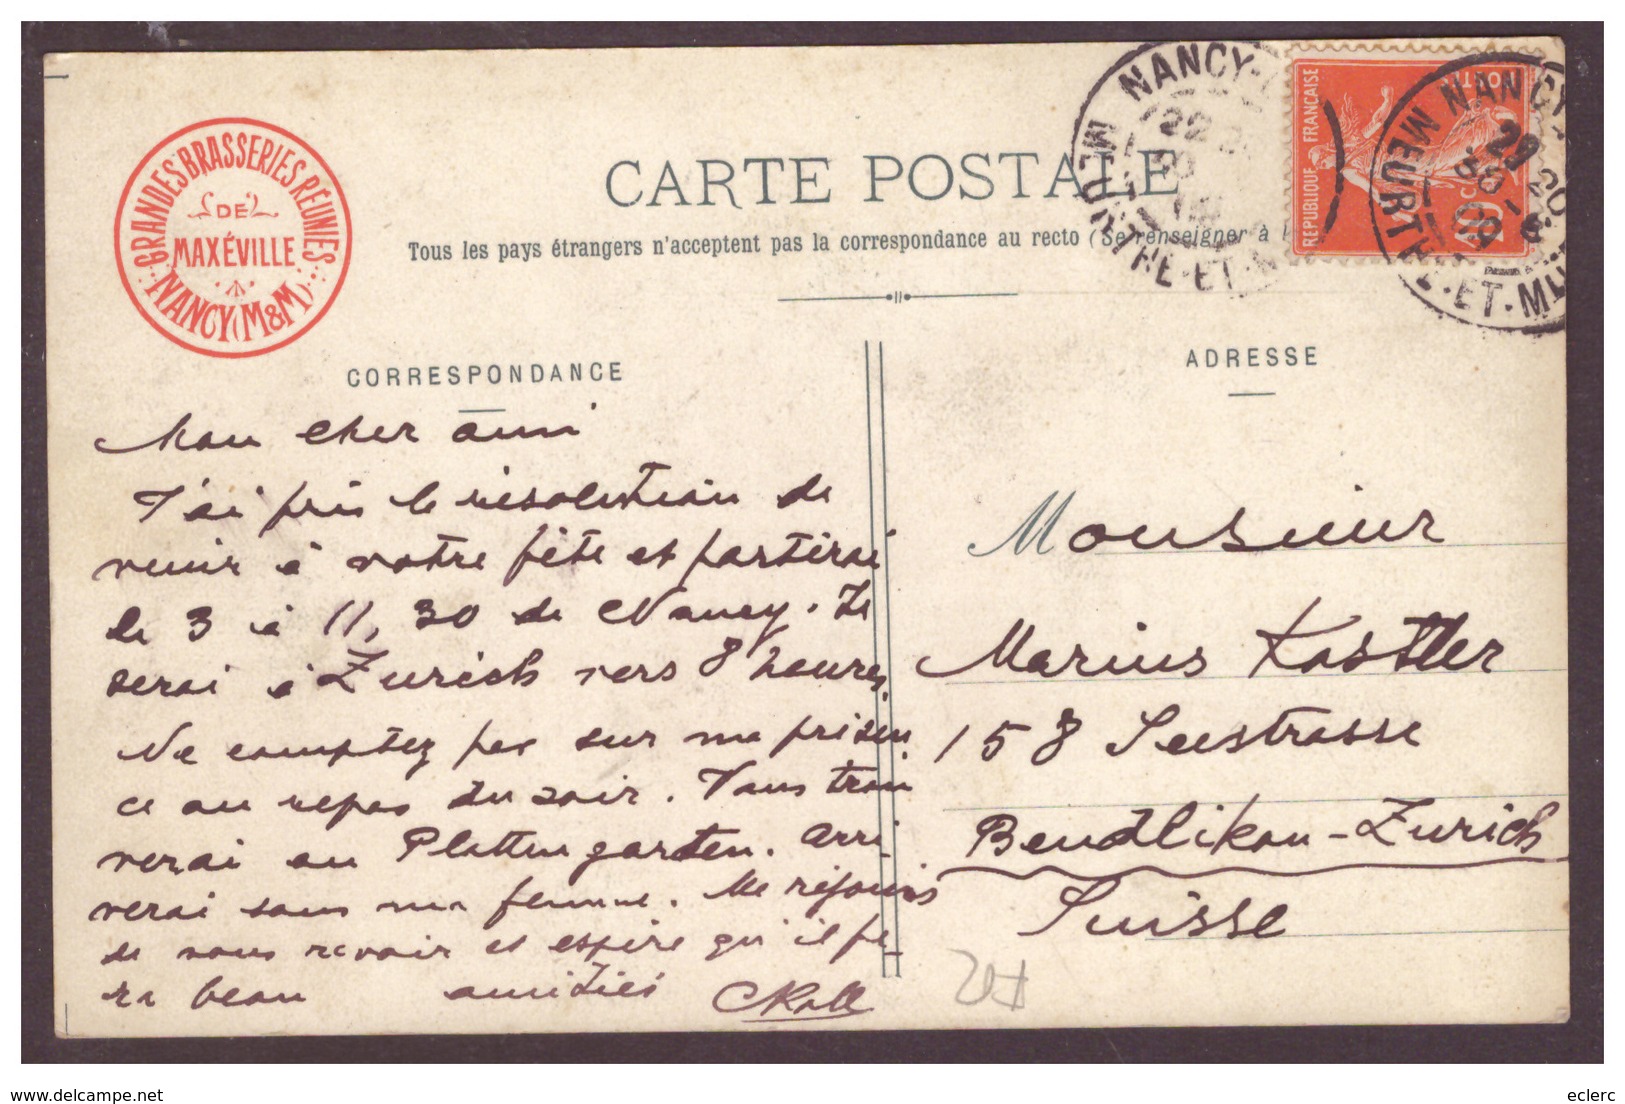 GRANDES BRASSERIES RÉUNIES
DE
MAXÉVILLE
NANCY (M&M)
CARTE POSTALE
Tous les pays étrangers n'acceptent pas la correspondance au recto (Se renseigner à l
NANCY
MEURTHE-ET-M
22
REPUBLIQUE FRANÇAISE
POSTES
10 C
NANCY
MEURTHE-ET-M
29
CORRESPONDANCE
ADRESSE
Mon cher ami
J'ai pris la résolution de
venir à votre fête et partirai
le 3 à 11,30 de Nancy. Je
serai à Zurich vers 8 heures.
Ne comptez pas sur ma présen
ce au repas du soir. Vous trou
verai au Plattengarten. Arri
verai sans ma femme. Me réjouis
de vous revoir et espère qu'il fe-
ra beau amitiés
Monsieur
Marius Kastler
158 Seestrasse
Bendlikon-Zurich
Suisse
delcampe.net
eclerc